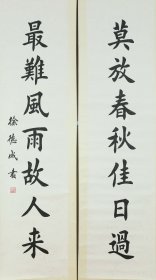 莫放春秋佳日過
最難風雨故人来
徐德成书